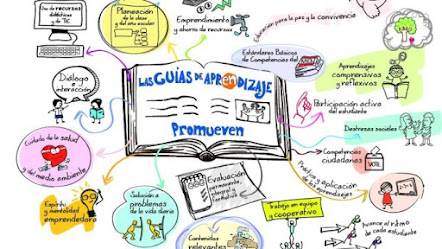 Uso de recursos
didácticos
y de TIC
Planeación
de la clase
y del año escolar
Emprendimiento
y ahorro de recursos
Educación para la paz y la convivencia
Estándares Básicos
de Competencias del
Aprendizajes
comprensivos
y reflexivos
Diálogo
e
interacción
LAS GUÍAS DE APRENDIZAJE
Promueven
Participación activa
del estudiante
Destrezas sociales
Cuidado de la salud
y del medio ambiente
Competencias
ciudadanas
VOTE
Evaluación
permanente,
integral y
formativa
Práctica y aplicación
de los aprendizajes
Espíritu
y mentalidad
emprendedora
Solución a
problemas
de la vida diaria
Trabajo en equipo
y cooperativo
Contenidos
relevantes
Avance al ritmo
de cada estudiante